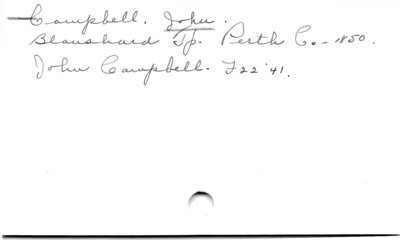 Campbell. John.
Blanshard Tp. Perth Co. - 1850.
John Campbell. F22 '41.